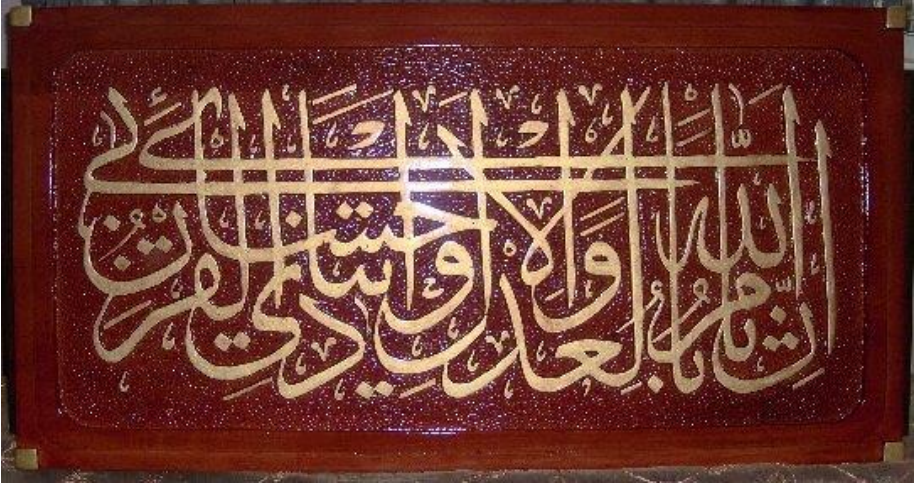 ان الله يأمر بالعدل والاحسان وايتائ ذي القربى